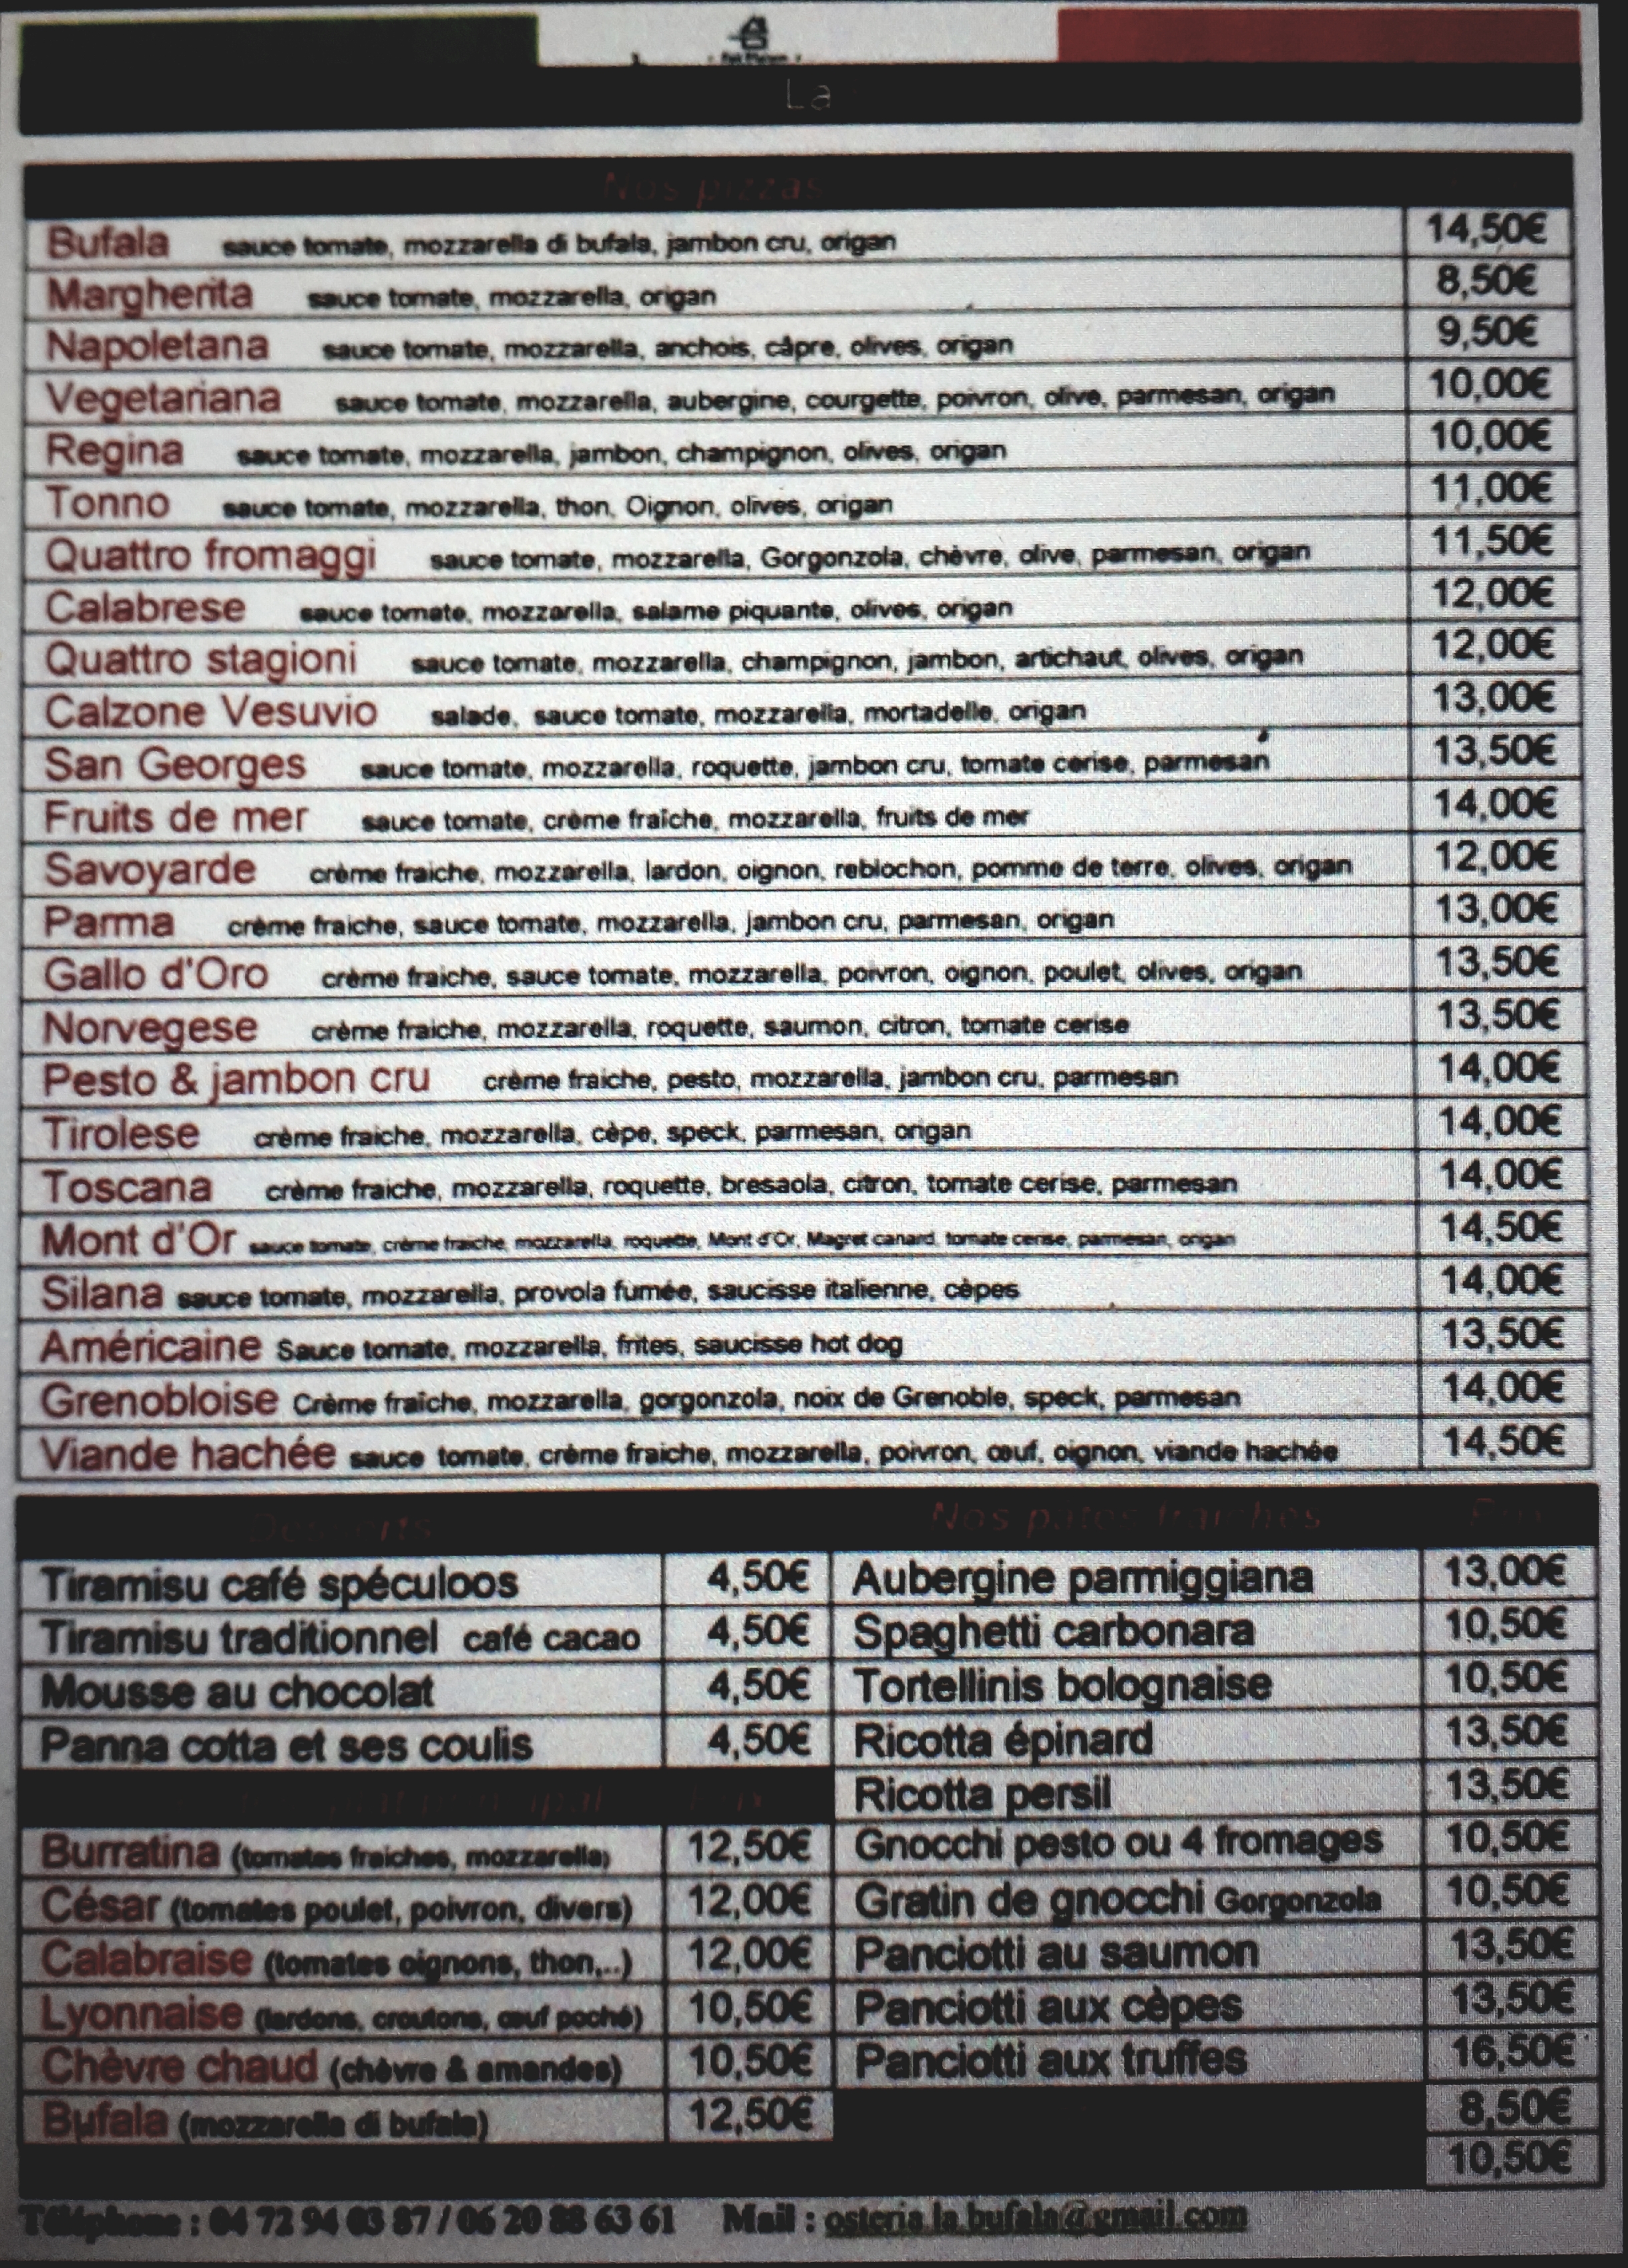 La
Nos pizzas
Bufala sauce tomate, mozzarella di bufala, jambon cru, origan 14,50€
Margherita sauce tomate, mozzarella, origan 8,50€
Napoletana sauce tomate, mozzarella, anchois, câpre, olives, origan 9,50€
Vegetariana sauce tomate, mozzarella, aubergine, courgette, poivron, olive, parmesan, origan 10,00€
Regina sauce tomate, mozzarella, jambon, champignon, olives, origan 10,00€
Tonno sauce tomate, mozzarella, thon, Oignon, olives, origan 11,00€
Quattro fromaggi sauce tomate, mozzarella, Gorgonzola, chèvre, olive, parmesan, origan 11,50€
Calabrese sauce tomate, mozzarella, salame piquante, olives, origan 12,00€
Quattro stagioni sauce tomate, mozzarella, champignon, jambon, artichaut, olives, origan 12,00€
Calzone Vesuvio salade, sauce tomate, mozzarella, mortadelle, origan 13,00€
San Georges sauce tomate, mozzarella, roquette, jambon cru, tomate cerise, parmesan 13,50€
Fruits de mer sauce tomate, crème fraîche, mozzarella, fruits de mer 14,00€
Savoyarde crème fraiche, mozzarella, lardon, oignon, reblochon, pomme de terre, olives, origan 12,00€
Parma crème fraiche, sauce tomate, mozzarella, jambon cru, parmesan, origan 13,00€
Gallo d'Oro crème fraiche, sauce tomate, mozzarella, poivron, oignon, poulet, olives, origan 13,50€
Norvegese crème fraiche, mozzarella, roquette, saumon, citron, tomate cerise 13,50€
Pesto & jambon cru crème fraiche, pesto, mozzarella, jambon cru, parmesan 14,00€
Tirolese crème fraiche, mozzarella, cèpe, speck, parmesan, origan 14,00€
Toscana crème fraiche, mozzarella, roquette, bresaola, citron, tomate cerise, parmesan 14,00€
Mont d'Or sauce tomate, crème fraiche, mozzarella, roquette, Mont d'Or, Magret canard, tomate cerise, parmesan, origan 14,50€
Silana sauce tomate, mozzarella, provola fumée, saucisse italienne, cèpes 14,00€
Américaine Sauce tomate, mozzarella, frites, saucisse hot dog 13,50€
Grenobloise Crème fraîche, mozzarella, gorgonzola, noix de Grenoble, speck, parmesan 14,00€
Viande hachée sauce tomate, crème fraiche, mozzarella, poivron, œuf, oignon, viande hachée 14,50€
Desserts Nos pates fraiches
Tiramisu café spéculoos 4,50€ Aubergine parmiggiana 13,00€
Tiramisu traditionnel café cacao 4,50€ Spaghetti carbonara 10,50€
Mousse au chocolat 4,50€ Tortellinis bolognaise 10,50€
Panna cotta et ses coulis 4,50€ Ricotta épinard 13,50€
Ricotta persil 13,50€
Burratina (tomates fraiches, mozzarella) 12,50€ Gnocchi pesto ou 4 fromages 10,50€
César (tomates poulet, poivron, divers) 12,00€ Gratin de gnocchi Gorgonzola 10,50€
Calabraise (tomates oignons, thon,..) 12,00€ Panciotti au saumon 13,50€
Lyonnaise (lardons, croutons, œuf poché) 10,50€ Panciotti aux cèpes 13,50€
Chèvre chaud (chèvre & amandes) 10,50€ Panciotti aux truffes 16,50€
Bufala (mozzarella di bufala) 12,50€ 8,50€
10,50€
Téléphone : 04 72 94 03 87 / 06 20 88 63 61 Mail : osteria.la.bufala@gmail.com